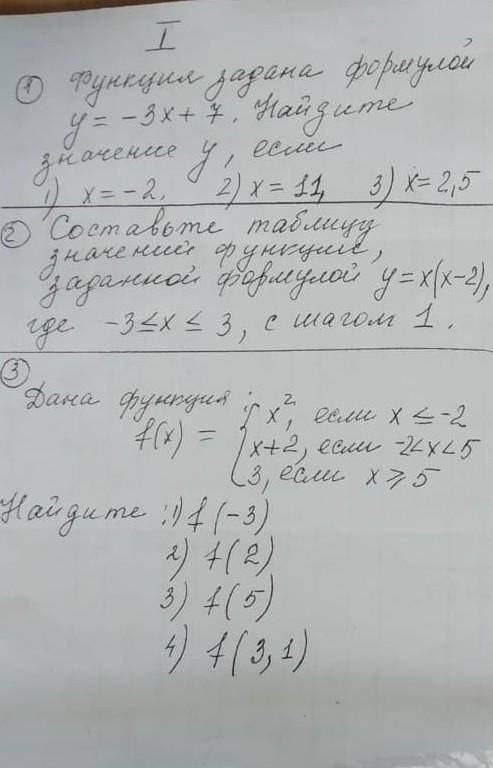 I
① Функция задана формулой
y = -3x + 7. Найдите
значение y, если
1) x = -2, 2) x = 11, 3) x = 2,5
② Составьте таблицу
значений функции,
заданной формулой y = x(x-2),
где -3 ≤ x ≤ 3, с шагом 1.
③
Дана функция:
f(x) = { x², если x ≤ -2
x+2, если -2<x<5
3, если x ⩾ 5
Найдите: 1) f(-3)
2) f(2)
3) f(5)
4) f(3,1)